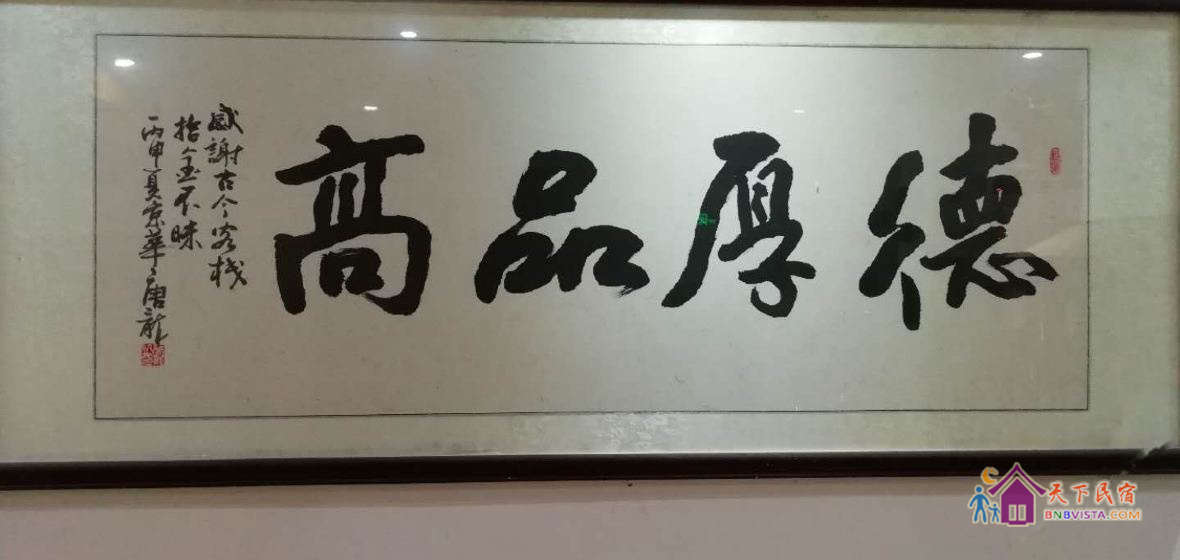 德厚品高
感謝古今客栈
拾金不昧
丙申夏京華唐龍
天下民宿
BNBVISTA.COM